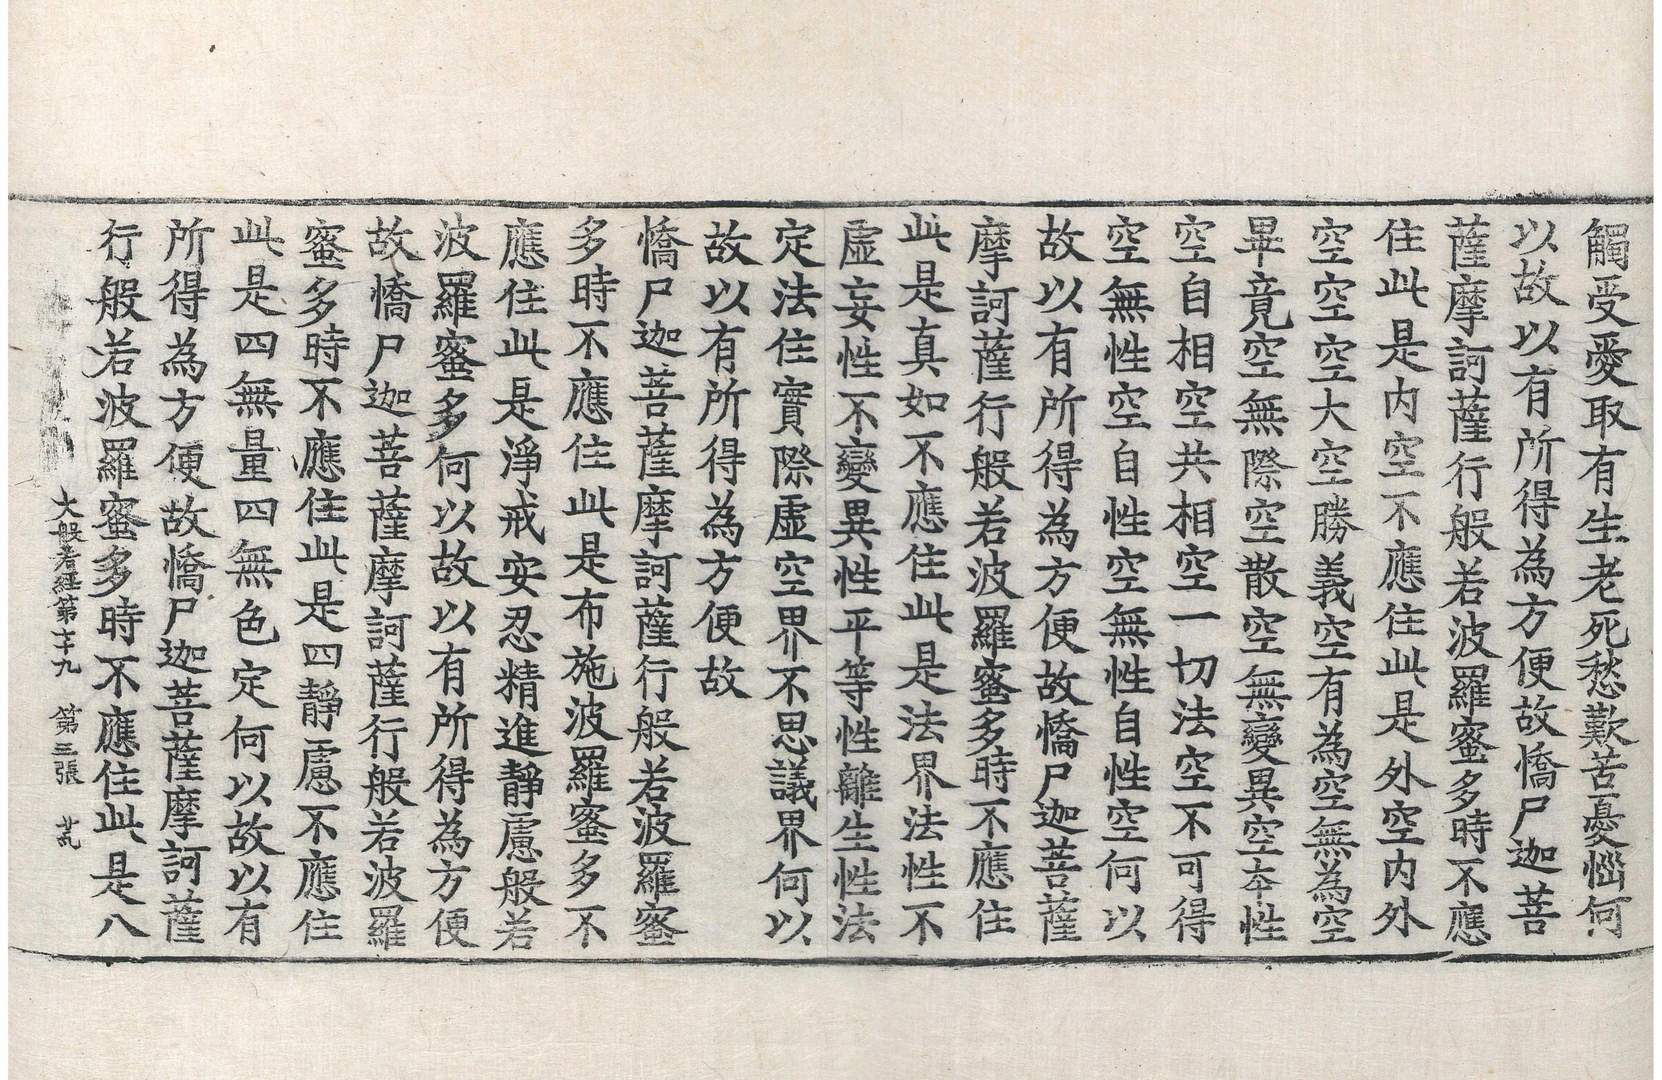 觸受愛取有生老死愁歎苦憂惱何
以故以有所得為方便故憍尸迦菩
薩摩訶薩行般若波羅蜜多時不應
住此是內空不應住此是外空內外
空空空大空勝義空有為空無為空
畢竟空無際空散空無變異空本性
空自相空共相空一切法空不可得
空無性空自性空無性自性空何以
故以有所得為方便故憍尸迦菩薩
摩訶薩行般若波羅蜜多時不應住
此是真如不應住此是法界法性不
虛妄性不變異性平等性離生性法
定法住實際虛空界不思議界何以
故以有所得為方便故
憍尸迦菩薩摩訶薩行般若波羅蜜
多時不應住此是布施波羅蜜多不
應住此是淨戒安忍精進靜慮般若
波羅蜜多何以故以有所得為方便
故憍尸迦菩薩摩訶薩行般若波羅
蜜多時不應住此是四靜慮不應住
此是四無量四無色定何以故以有
所得為方便故憍尸迦菩薩摩訶薩
行般若波羅蜜多時不應住此是八
大般若經第七十九 第三張